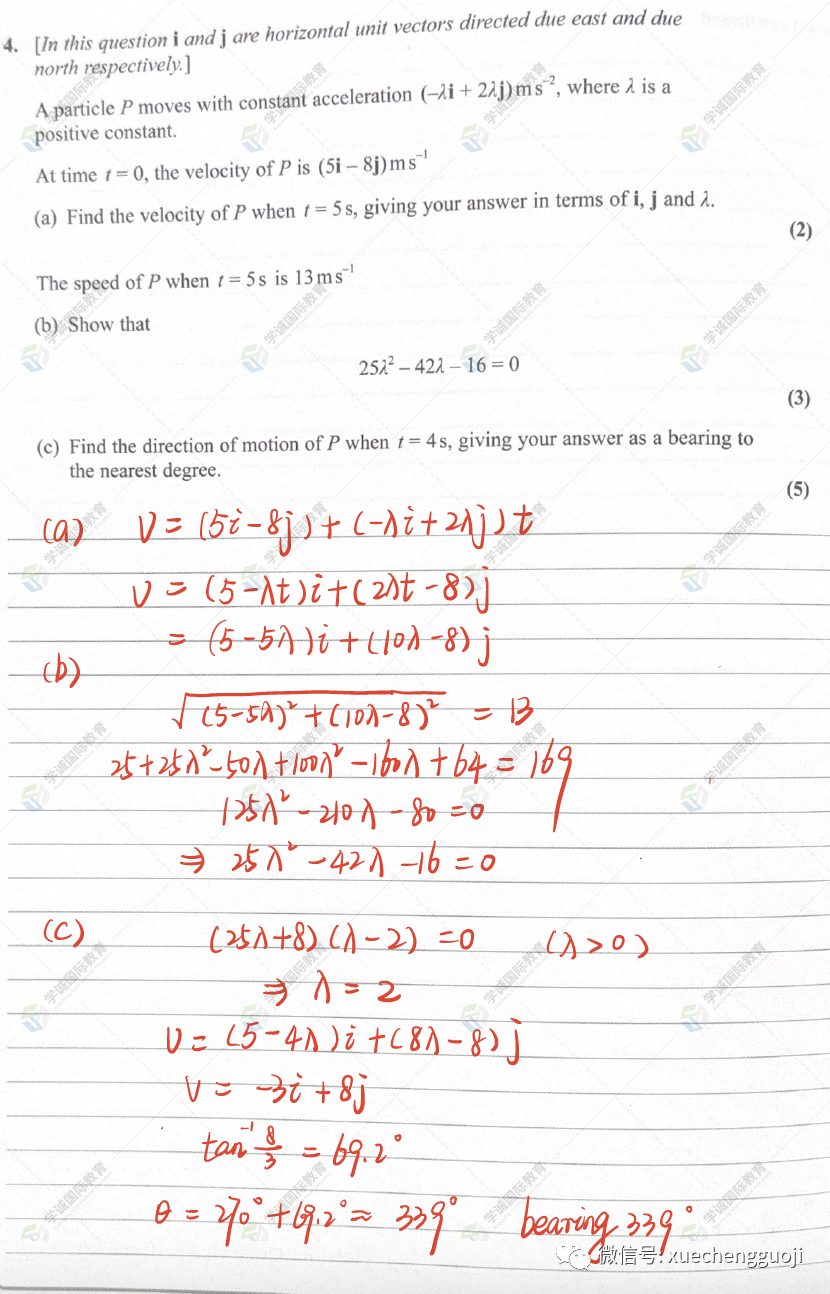 4. [In this question i and j are horizontal unit vectors directed due east and due
north respectively.]
A particle P moves with constant acceleration (–λi + 2λj) m s⁻², where λ is a
positive constant.
At time t = 0, the velocity of P is (5i – 8j) m s⁻¹
(a) Find the velocity of P when t = 5 s, giving your answer in terms of i, j and λ.
(2)
The speed of P when t = 5 s is 13 m s⁻¹
(b) Show that
25λ² – 42λ – 16 = 0
(3)
(c) Find the direction of motion of P when t = 4 s, giving your answer as a bearing to
the nearest degree.
(5)
(a) V = (5i - 8j) + (-λi + 2λj) t
V = (5 - λt)i + (2λt - 8)j
= (5 - 5λ)i + (10λ - 8)j
(b)
√((5-5λ)² + (10λ-8)²) = 13
25 + 25λ² - 50λ + 100λ² - 160λ + 64 = 169
125λ² - 210λ - 80 = 0
⇒ 25λ² - 42λ - 16 = 0
(c) (25λ+8)(λ-2) = 0 (λ > 0)
⇒ λ = 2
V = (5 - 4λ)i + (8λ - 8)j
V = -3i + 8j
tan⁻¹ 8/3 = 69.2°
θ = 270° + 69.2° ≈ 339° bearing 339°
微信号: xuechengguoji
学诚国际教育